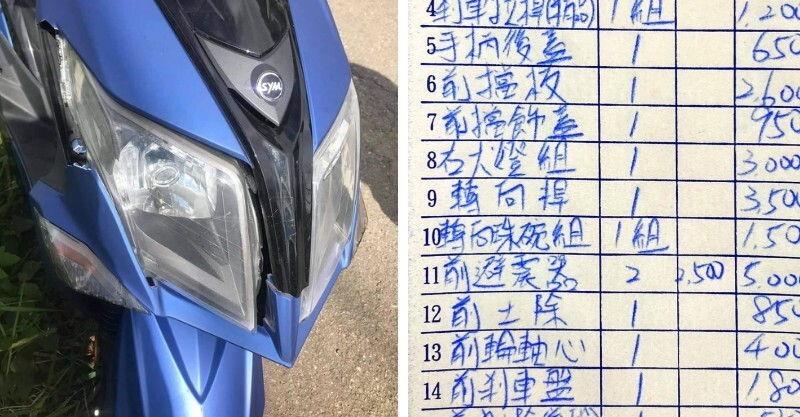 SYM
4 剎車拉桿(醋) 1組 1.200
5 手柄後蓋 1 650
6 前擋板 1 2.600
7 前擋飾蓋 1 950
8 右大燈組 1 3.000
9 轉向桿 1 3.50
10 轉向珠碗組 1組 1.50
11 前避震器 2 2.500 5.000
12 前土除 1 850
13 前輪軸心 1 400
14 前剎車盤 1 1.80